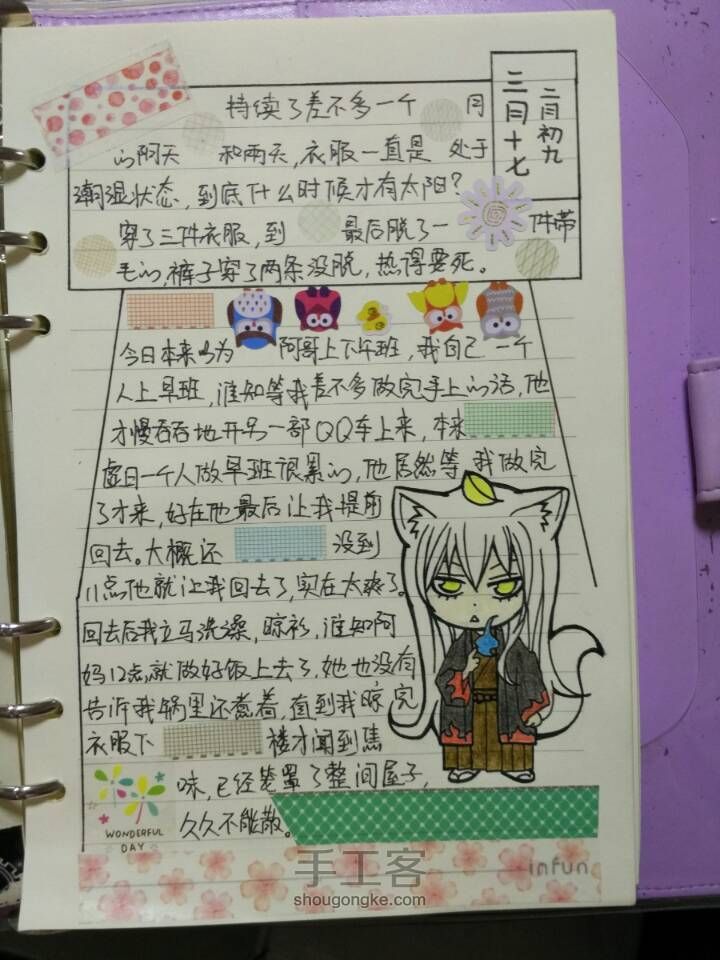 三月十七
二月初九
持续了差不多一个 月
的阴天 和雨天，衣服一直是 处于
潮湿状态，到底什么时候才有太阳？
穿了三件衣服，到 最后脱了一 件带
毛的，裤子穿了两条没脱，热得要死。
今日本来以为 阿哥上下午班，我自己一个
人上早班，谁知等我差不多做完手上的活，他
才慢吞吞地开另一部QQ车上来，本来
虚日一个人做早班很累的，他居然等 我做完
了才来，好在他最后让我提前
回去。大概还 没到
11点他就让我回去了，实在太爽了。
回去后我立马洗澡，晾衫，谁知阿
妈12点就做好饭上去了，她也没有
告诉我锅里还煮着，直到我晾完
衣服下 楼才闻到焦
味，已经笼罩了整间屋子，
久久不能散。
WONDERFUL
DAY
infun
手工客
shougongke.com